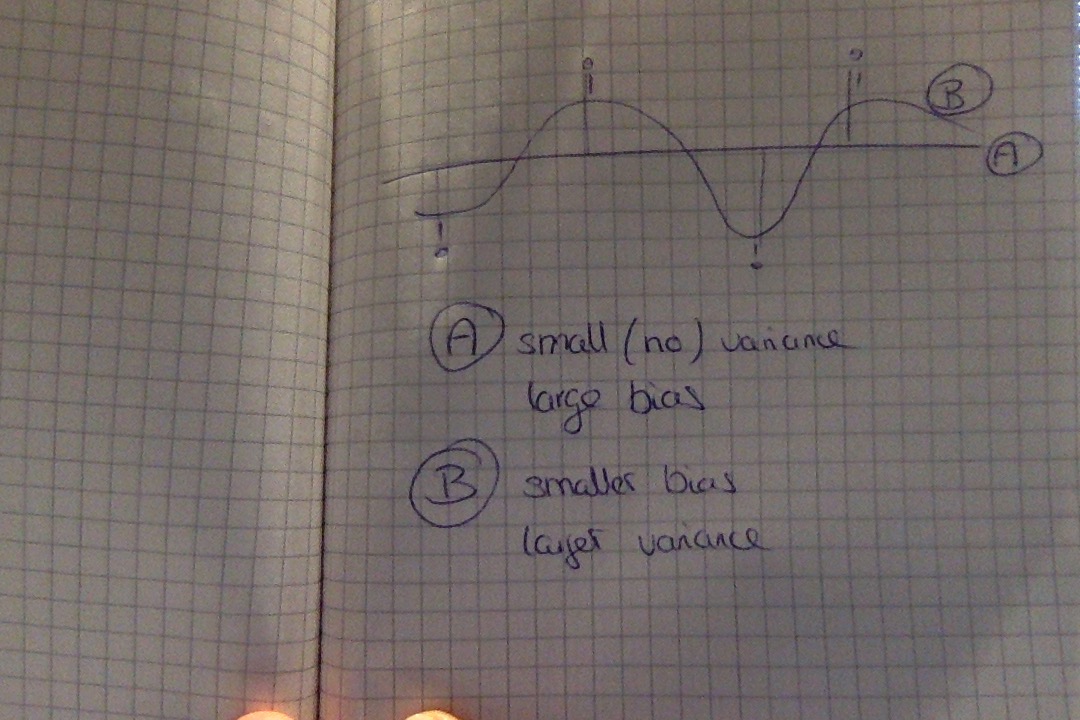 B
A
A small (no) variance
large bias
B smaller bias
larger variance